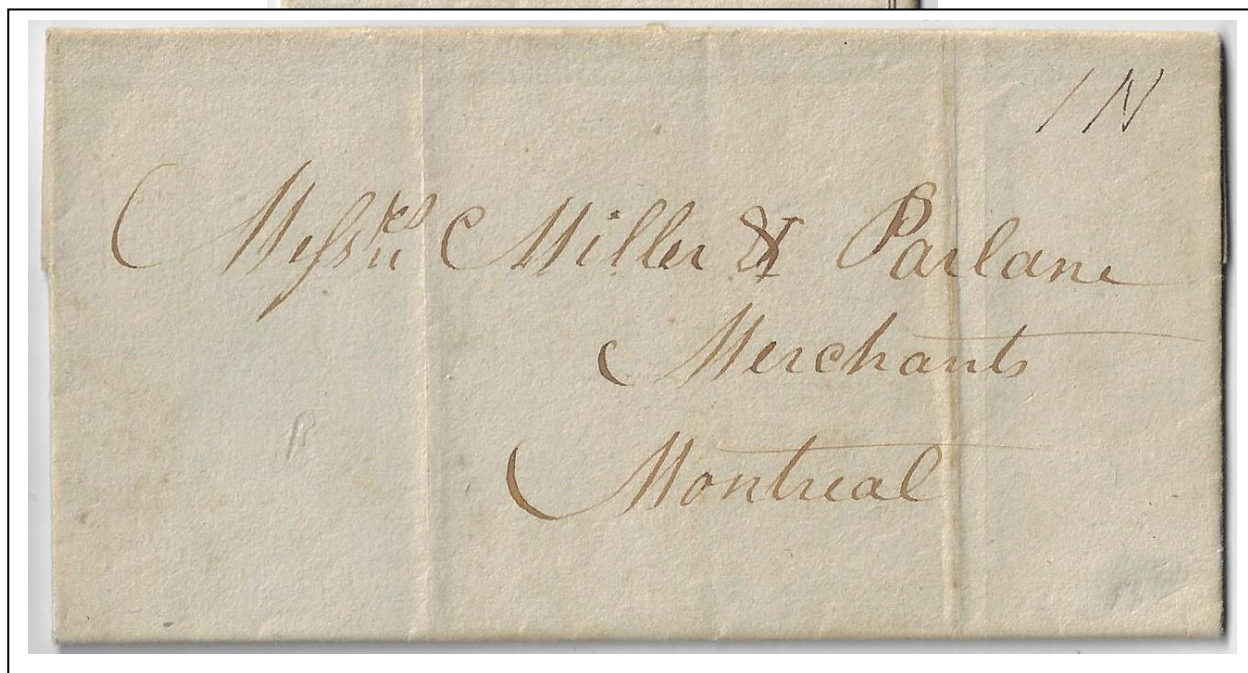 1N
Messrs Miller & Parlane
Merchants
Montreal